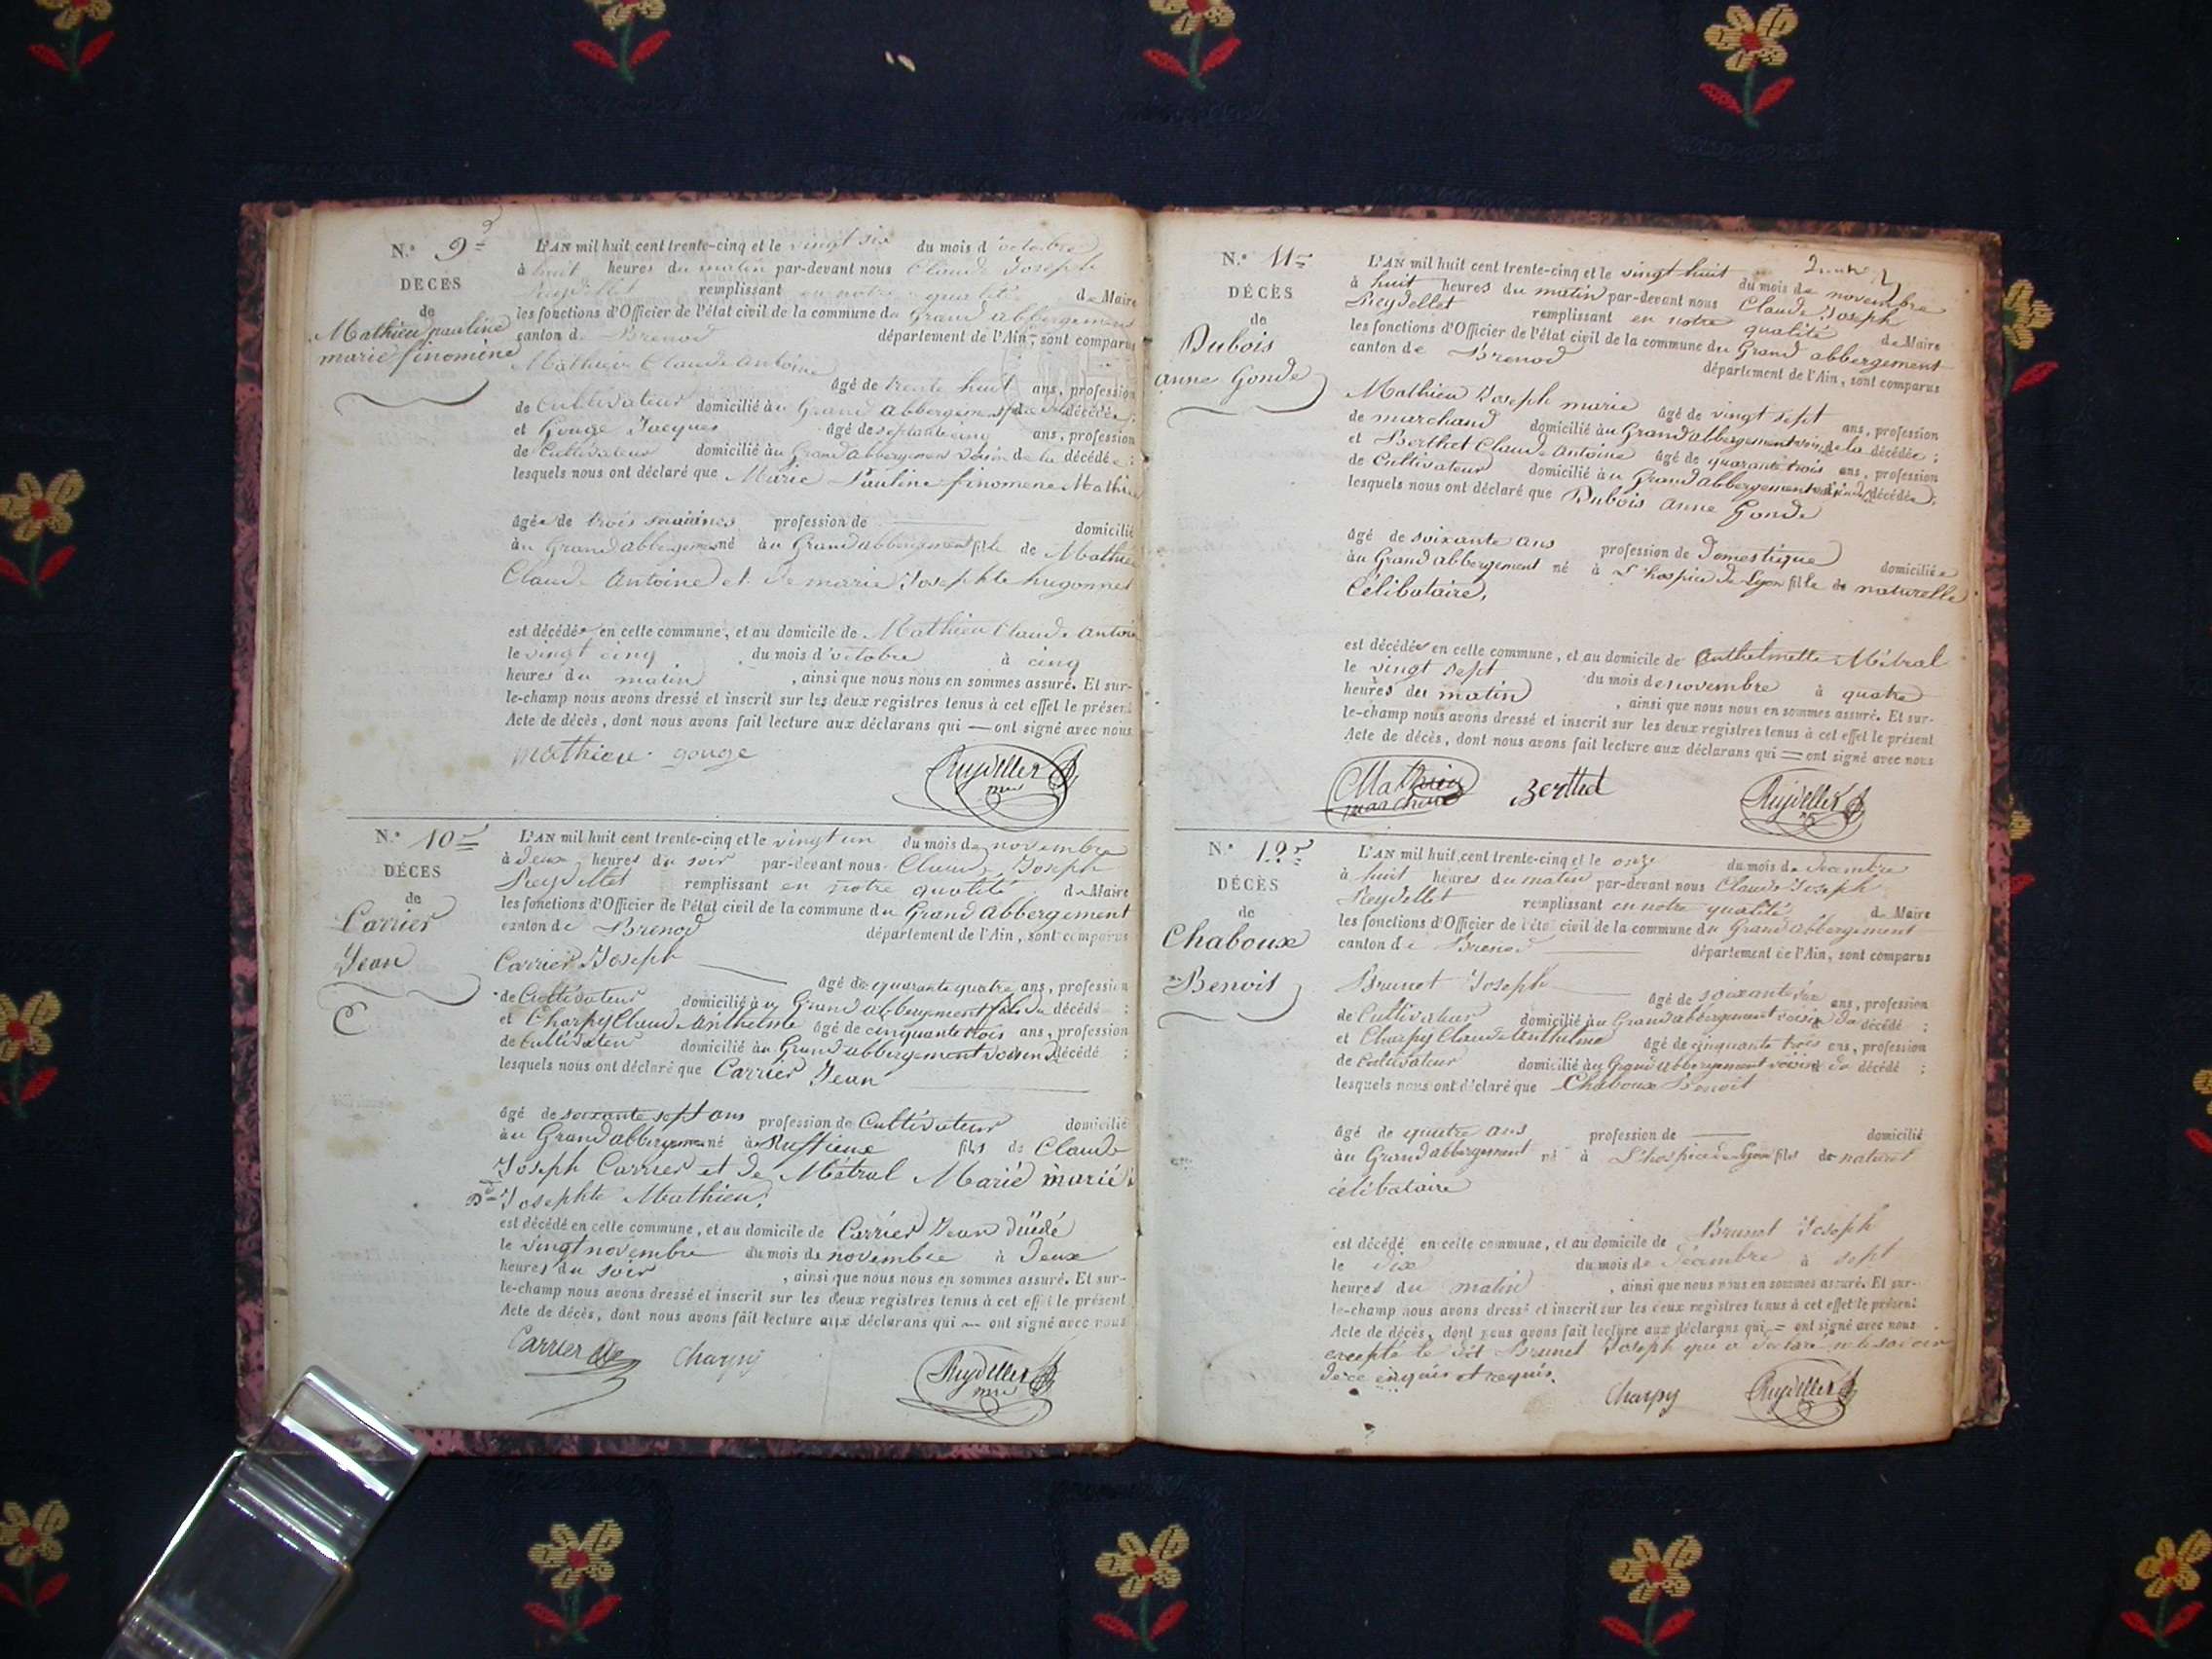 N.° 9
DÉCÈS
de
Mathieu pauline
marie finomène
L'AN mil huit cent trente-cinq et le vingt six du mois d'octobre
à huit heures du matin par-devant nous Claude Joseph
Reydellet remplissant en notre qualité de Maire
les fonctions d'Officier de l'état civil de la commune du Grand abbergement
canton de Brenod département de l'Ain, sont comparus
Mathieu Claude Antoine
âgé de trente huit ans, profession
de Cultivateur domicilié au Grand abbergement décédée;
et Gouge Jacques âgé de septante cinq ans, profession
de Cultivateur domicilié au Grand abbergement voisin de la décédée;
lesquels nous ont déclaré que Marie Pauline finomene Mathieu
âgée de trois semaines profession de domicilié
au Grand abbergement né au Grand abbergement fille de Mathieu
Claude Antoine et de marie Josephte hugonnet
est décédée en cette commune, et au domicile de Mathieu Claude Antoine
le vingt cinq du mois d'octobre à cinq
heures du matin, ainsi que nous nous en sommes assuré. Et sur-
le-champ nous avons dressé et inscrit sur les deux registres tenus à cet effet le présent
Acte de décès, dont nous avons fait lecture aux déclarans qui — ont signé avec nous
mathieu gouge Reydellet
N.° 10
DÉCÈS
de
Carrier
Jean
L'AN mil huit cent trente-cinq et le vingt un du mois de novembre
à deux heures du soir par-devant nous Claude Joseph
Reydellet remplissant en notre qualité de Maire
les fonctions d'Officier de l'état civil de la commune du Grand abbergement
canton de Brenod département de l'Ain, sont comparus
Carrier Joseph
âgé de quarante quatre ans, profession
de Cultivateur domicilié au Grand abbergement fils du décédé;
et Charpy Claude Anthelme âgé de cinquante trois ans, profession
de cultivateur domicilié au Grand abbergement voisin décédé;
lesquels nous ont déclaré que Carrier Jean
âgé de soixante sept ans profession de Cultivateur domicilié
au Grand abbergement né à Ruffieux fils de Claude
Joseph Carrier et de Métral Marie marié à
Josephte Mathieu.
est décédé en cette commune, et au domicile de Carrier Jean
le vingt novembre du mois de novembre à deux
heures du soir, ainsi que nous nous en sommes assuré. Et sur-
le-champ nous avons dressé et inscrit sur les deux registres tenus à cet effet le présent
Acte de décès, dont nous avons fait lecture aux déclarans qui — ont signé avec nous
Carrier Charpy Reydellet
N.° 11
DÉCÈS
de
Dubois
Anne Gonde
L'AN mil huit cent trente-cinq et le vingt huit du mois de novembre
à huit heures du matin par-devant nous Claude Joseph
Reydellet remplissant en notre qualité de Maire
les fonctions d'Officier de l'état civil de la commune du Grand abbergement
canton de Brenod département de l'Ain, sont comparus
Mathieu Joseph marie âgé de vingt sept ans, profession
de marchand domicilié au Grand abbergement voisin de la décédée;
et Berthet Claude Antoine âgé de quarante trois ans, profession
de Cultivateur domicilié au Grand abbergement décédée;
lesquels nous ont déclaré que Dubois Anne Gonde
âgé de soixante ans profession de Domestique domiciliée
au Grand abbergement né à L'hospice de Lyon fille de naturelle
Célibataire,
est décédée en cette commune, et au domicile de Anthelmette Métral
le vingt sept du mois de novembre à quatre
heures du matin, ainsi que nous nous en sommes assuré. Et sur-
le-champ nous avons dressé et inscrit sur les deux registres tenus à cet effet le présent
Acte de décès, dont nous avons fait lecture aux déclarans qui = ont signé avec nous
Mathieu Berthet Reydellet
marchand
N.° 12
DÉCÈS
de
Chaboux
Benoit
L'AN mil huit cent trente-cinq et le onze du mois de décembre
à huit heures du matin par-devant nous Claude Joseph
Reydellet remplissant en notre qualité de Maire
les fonctions d'Officier de l'état civil de la commune du Grand abbergement
canton de Brenod département de l'Ain, sont comparus
Brunet Joseph âgé de soixante ans, profession
de Cultivateur domicilié au Grand abbergement voisin du décédé;
et Charpy Claude Anthelme âgé de cinquante trois ans, profession
de Cultivateur domicilié au Grand abbergement voisin du décédé;
lesquels nous ont déclaré que Chaboux Benoit
âgé de quatre ans profession de domicilié
au Grand abbergement né à L'hospice de Lyon fils de naturel
célibataire
est décédé en cette commune, et au domicile de Brunet Joseph
le dix du mois de décembre à sept
heures du matin, ainsi que nous nous en sommes assuré. Et sur-
le-champ nous avons dressé et inscrit sur les deux registres tenus à cet effet le présent
Acte de décès, dont nous avons fait lecture aux déclarans qui = ont signé avec nous
excepté le dit Brunet Joseph qui a déclaré ne le savoir
de ce enquis et requis.
Charpy Reydellet